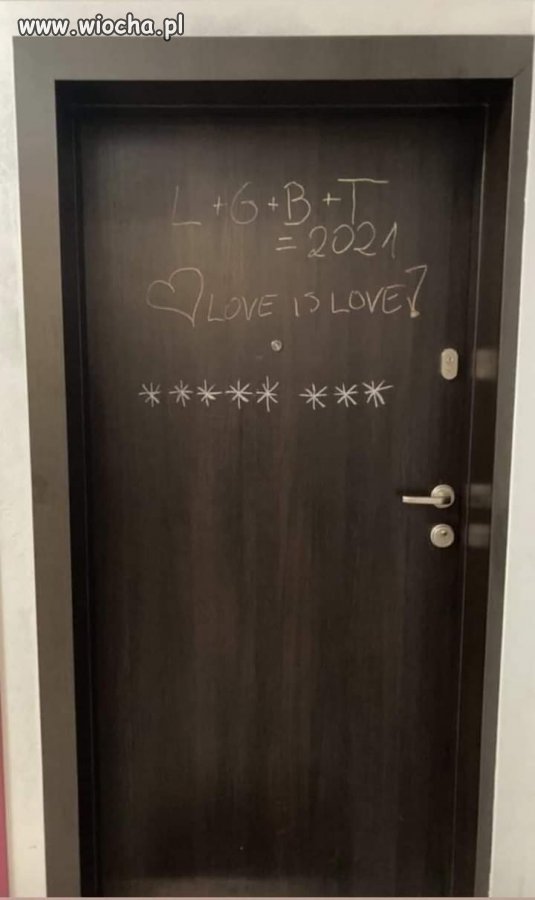 www.wiocha.pl
L+G+B+T
=2021
♡LOVE IS LOVE!
***** ***